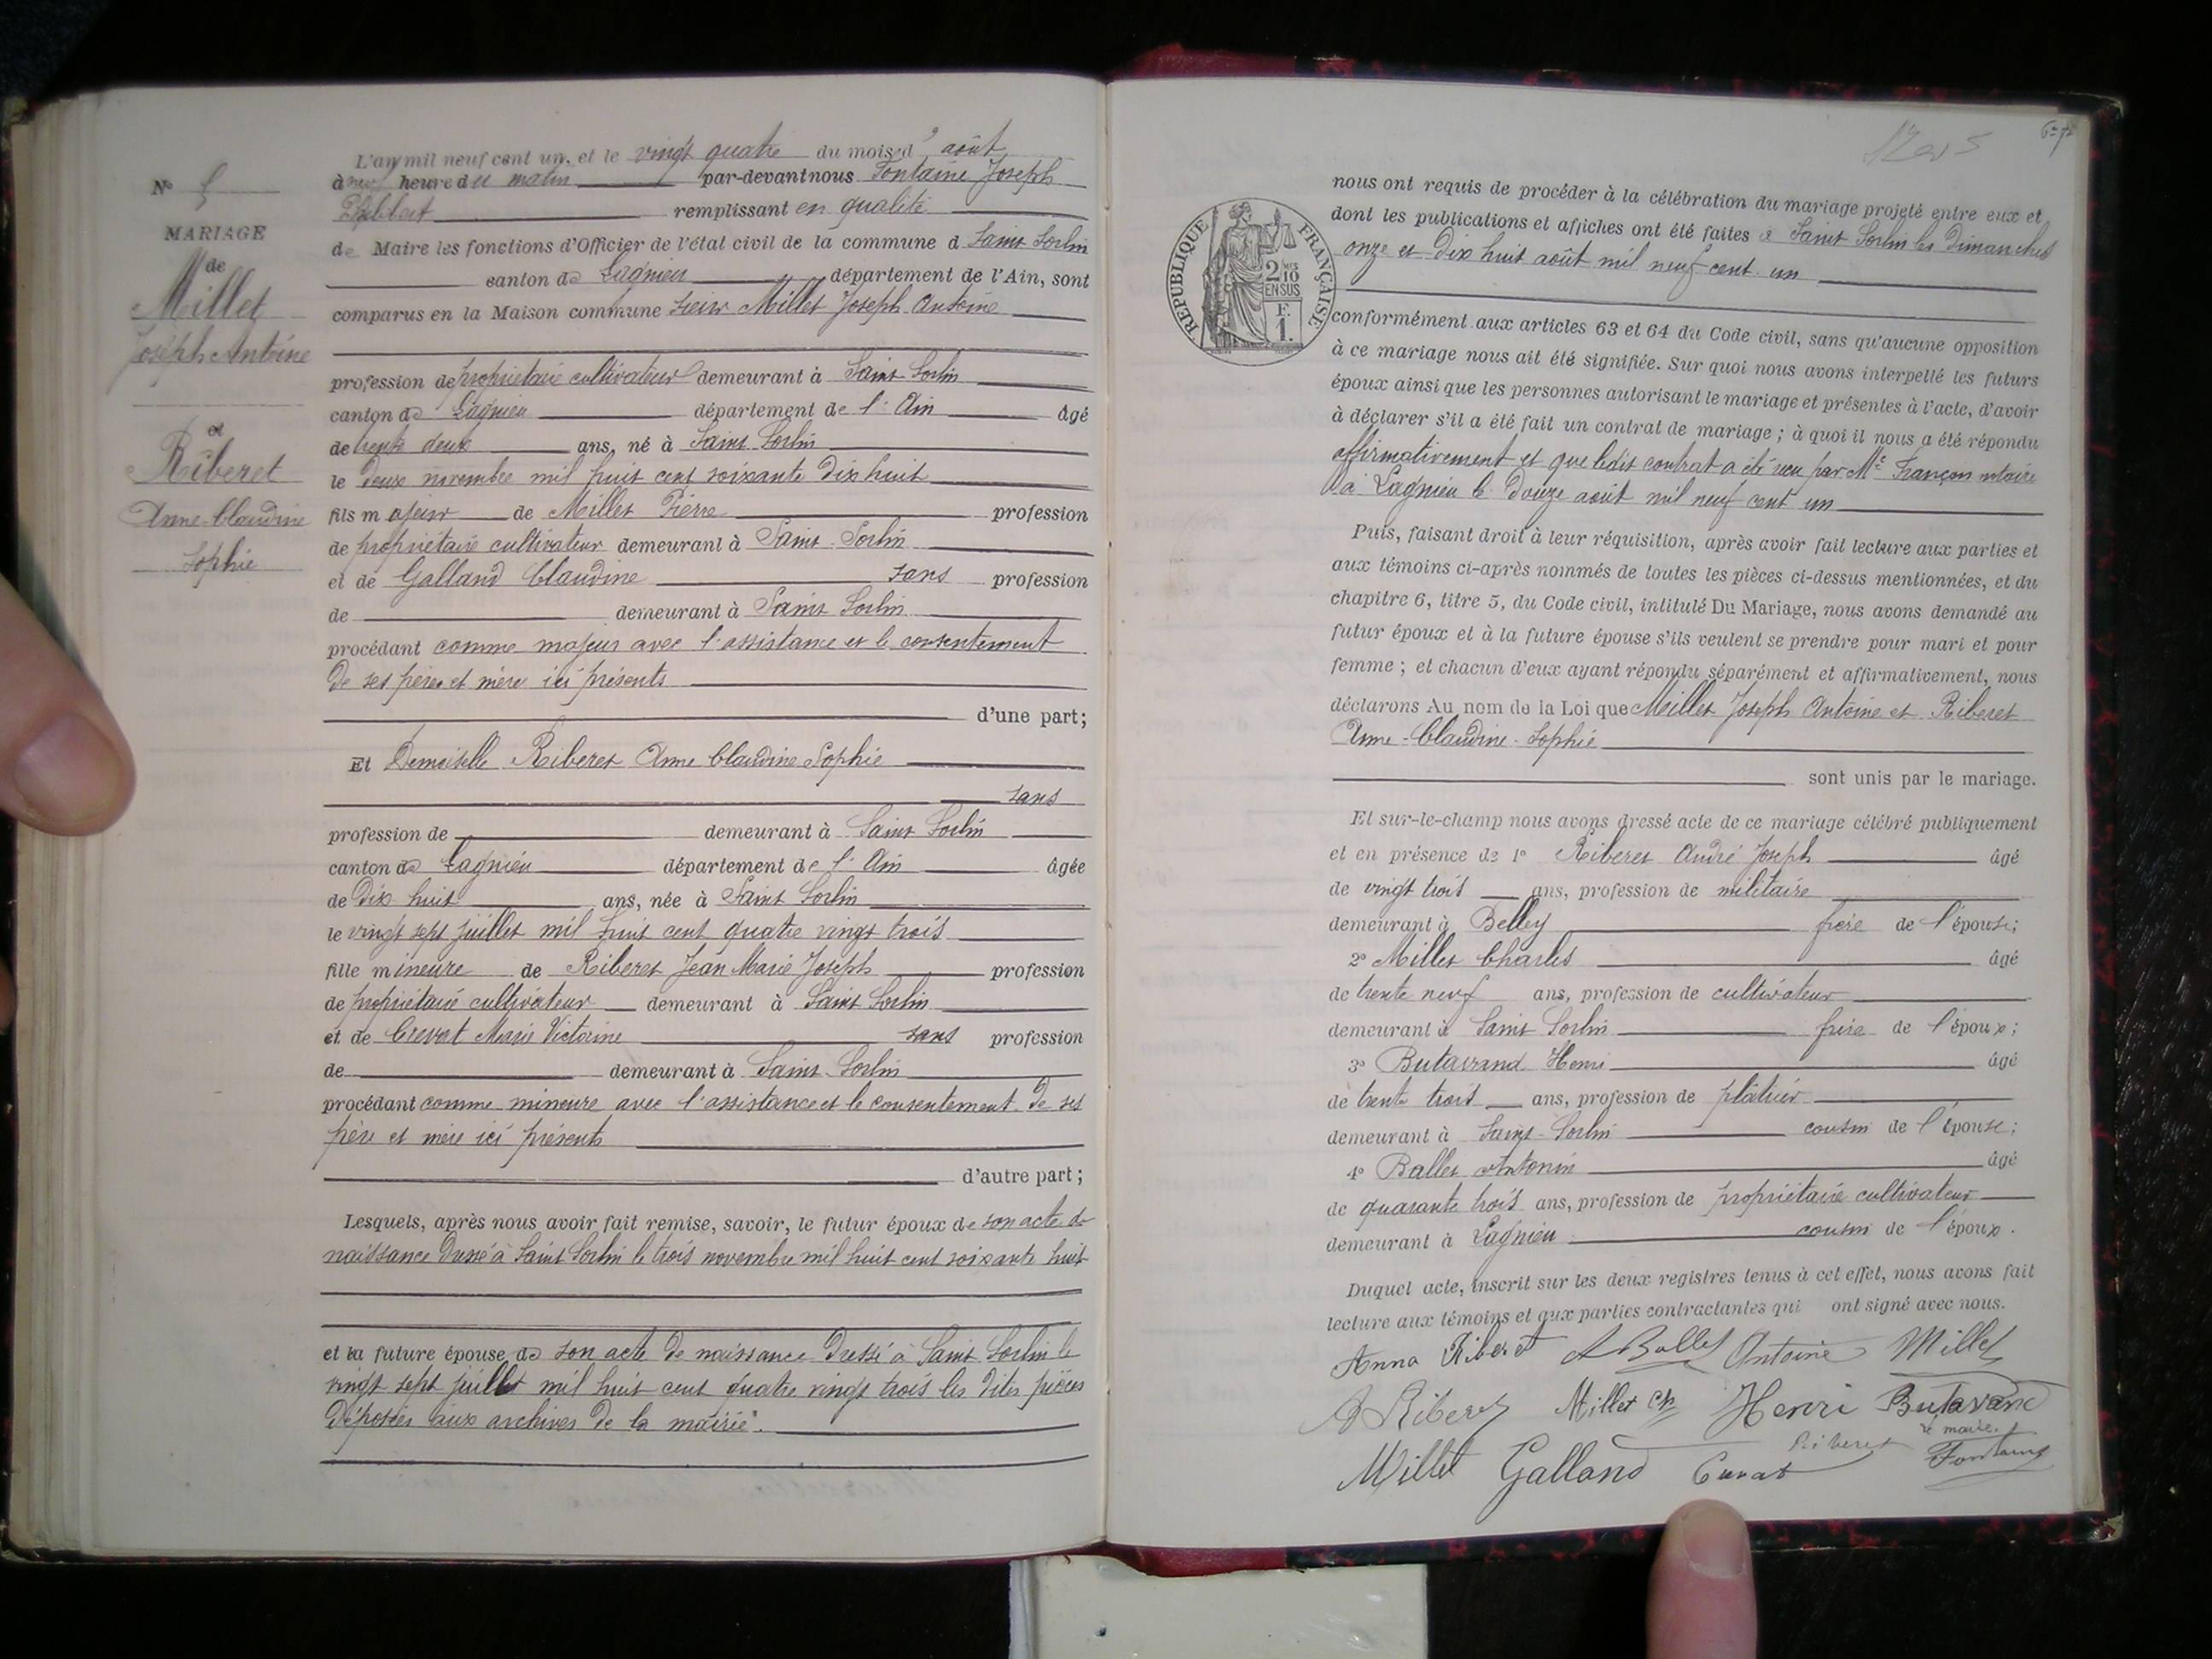 N° 5
MARIAGE
de
Millet
Joseph Antoine
et
Riberet
Anne-Claudine
Sophie
L'an mil neuf cent un, et le vingt quatre du mois d'août
à neuf heure du matin par-devant nous Fontaine Joseph
remplissant en qualité
de Maire les fonctions d'Officier de l'état civil de la commune d Saint Sorlin
canton de Lagnieu département de l'Ain, sont
comparus en la Maison commune sieur Millet Joseph Antoine
profession de propriétaire cultivateur demeurant à Saint Sorlin
canton de Lagnieu département de l'Ain âgé
de trente deux ans, né à Saint Sorlin
le deux novembre mil huit cent soixante dix huit
fils majeur de Millet Pierre profession
de propriétaire cultivateur demeurant à Saint-Sorlin
et de Galland Claudine sans profession
de demeurant à Saint Sorlin
procédant comme majeur avec l'assistance et le consentement
de ses père et mère ici présents
d'une part;
Et Demoiselle Riberet Anne Claudine Sophie
sans
profession de demeurant à Saint Sorlin
canton de Lagnieu département de l'Ain âgée
de dix huit ans, née à Saint Sorlin
le vingt sept juillet mil huit cent quatre vingt trois
fille mineure de Riberet Jean Marie Joseph profession
de propriétaire cultivateur demeurant à Saint Sorlin
et de Marie Victorine sans profession
de demeurant à Saint-Sorlin
procédant comme mineure avec l'assistance et le consentement de ses
père et mère ici présents
d'autre part;
Lesquels, après nous avoir fait remise, savoir, le futur époux de son acte de
naissance dressé à Saint Sorlin le trois novembre mil huit cent soixante huit
et la future épouse de son acte de naissance dressé à Saint Sorlin le
vingt sept juillet mil huit cent quatre vingt trois les dites pièces
déposées aux archives de la mairie.
RÉPUBLIQUE FRANÇAISE
2/10 EN SUS
F. 1.
nous ont requis de procéder à la célébration du mariage projeté entre eux et
dont les publications et affiches ont été faites à Saint Sorlin les Dimanches
onze et dix huit août mil neuf cent un
conformément aux articles 63 et 64 du Code civil, sans qu'aucune opposition
à ce mariage nous ait été signifiée. Sur quoi nous avons interpellé les futurs
époux ainsi que les personnes autorisant le mariage et présentes à l'acte, d'avoir
à déclarer s'il a été fait un contrat de mariage; à quoi il nous a été répondu
affirmativement et que ledit contrat a été reçu par Me Françon notaire
à Lagnieu le douze août mil neuf cent un
Puis, faisant droit à leur réquisition, après avoir fait lecture aux parties et
aux témoins ci-après nommés de toutes les pièces ci-dessus mentionnées, et du
chapitre 6, titre 5, du Code civil, intitulé Du Mariage, nous avons demandé au
futur époux et à la future épouse s'ils veulent se prendre pour mari et pour
femme; et chacun d'eux ayant répondu séparément et affirmativement, nous
déclarons Au nom de la Loi que Millet Joseph Antoine et Riberet
Anne-Claudine-Sophie
sont unis par le mariage.
Et sur-le-champ nous avons dressé acte de ce mariage célébré publiquement
et en présence de 1° Riberet André Joseph âgé
de vingt trois ans, profession de militaire
demeurant à Belley frère de l'épouse;
2° Millet Charles âgé
de trente neuf ans, profession de cultivateur
demeurant à Saint Sorlin frère de l'époux;
3° Butavand Henri âgé
de trente trois ans, profession de plâtrier
demeurant à Saint-Sorlin cousin de l'épouse;
4° Ballet Antonin âgé
de quarante trois ans, profession de propriétaire cultivateur
demeurant à Lagnieu cousin de l'époux.
Duquel acte, inscrit sur les deux registres tenus à cet effet, nous avons fait
lecture aux témoins et aux parties contractantes qui ont signé avec nous.
Anna Riberet A Ballet Antoine Millet
A Riberet Millet Ch Henri Butavand
Riberet le maire.
Millet Galland Fontaine